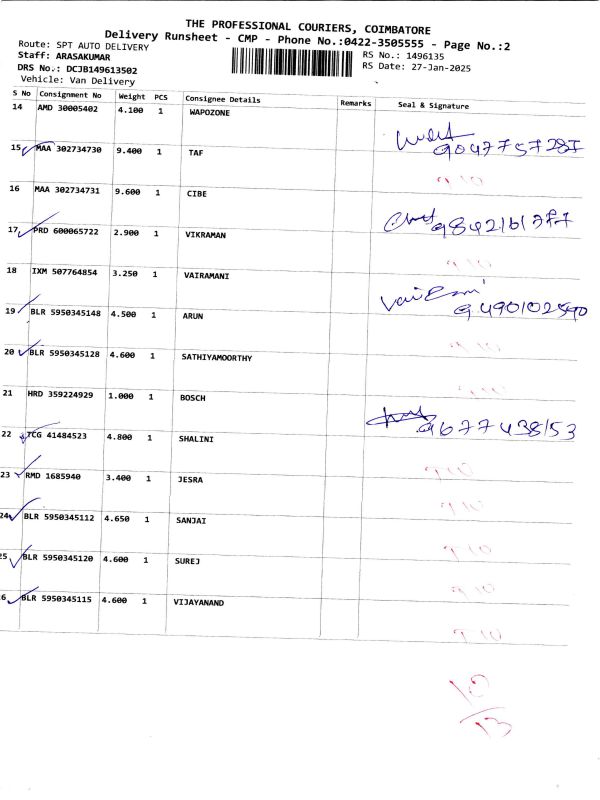 THE PROFESSIONAL COURIERS, COIMBATORE
Delivery Runsheet - CMP - Phone No.:0422-3505555 - Page No.:2
Route: SPT AUTO DELIVERY
RS No.: 1496135
Staff: ARASAKUMAR
RS Date: 27-Jan-2025
DRS No.: DCJB149613502
Vehicle: Van Delivery
S No Consignment No Weight PCS Consignee Details Remarks Seal & Signature
14 AMD 30005402 4.100 1 WAPOZONE
9047757287
15 MAA 302734730 9.400 1 TAF
16 MAA 302734731 9.600 1 CIBE
17 PRD 600065722 2.900 1 VIKRAMAN
18 IXM 507764854 3.250 1 VAIRAMANI
9490102590
19 BLR 5950345148 4.500 1 ARUN
20 BLR 5950345128 4.600 1 SATHIYAMOORTHY
21 HRD 359224929 1.000 1 BOSCH
9677438153
22 TCG 41484523 4.800 1 SHALINI
23 RMD 1685940 3.400 1 JESRA
24 BLR 5950345112 4.650 1 SANJAI
5 BLR 5950345120 4.600 1 SUREJ
6 BLR 5950345115 4.600 1 VIJAYANAND
10
13